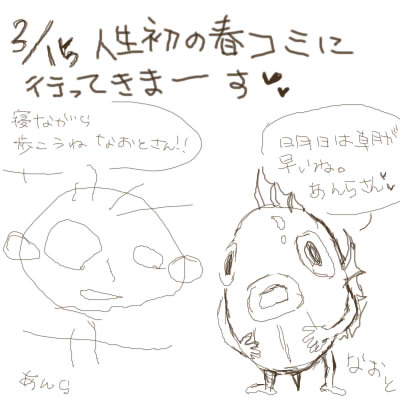 3/15 人生初の春コミに
行ってきまーす♥♥
寝ながら
歩こうね なおとさん!!
明日は朝が
早いね。
あんらさん♥
あんら
なおと